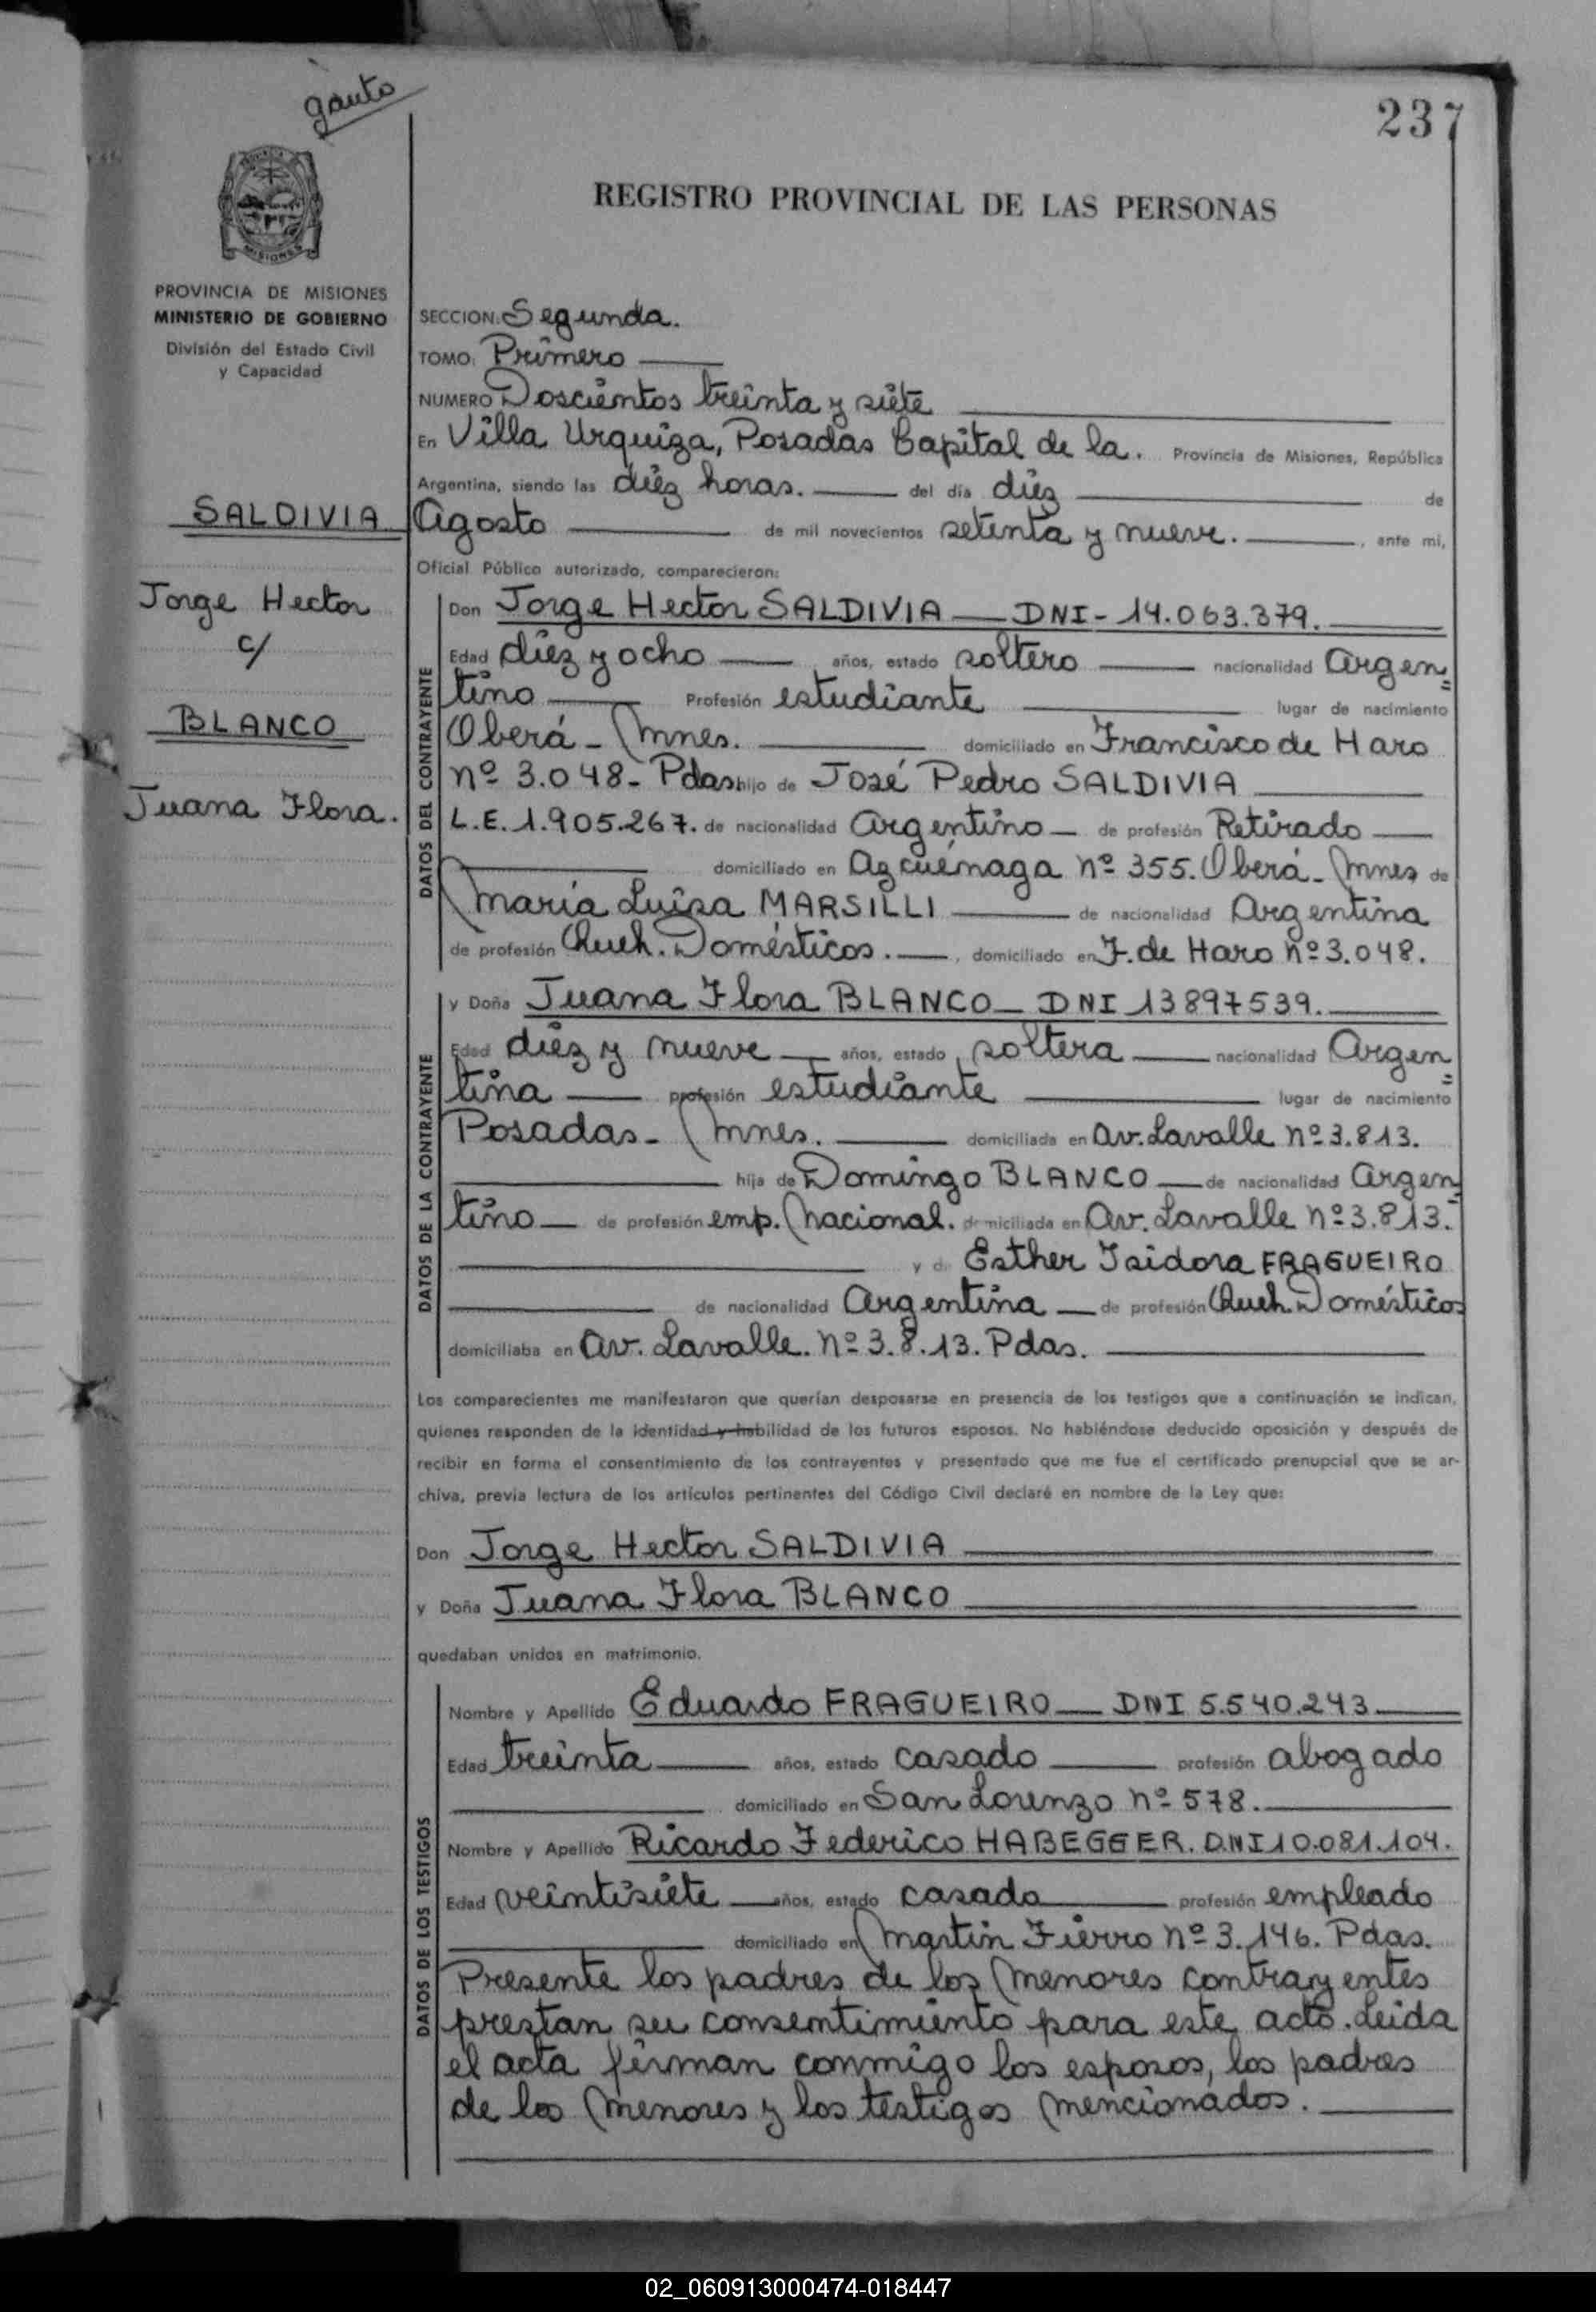 gauto
237
MISIONES
REGISTRO PROVINCIAL DE LAS PERSONAS
PROVINCIA DE MISIONES
MINISTERIO DE GOBIERNO
División del Estado Civil
y Capacidad
SALDIVIA
Jorge Hector
c/
BLANCO
Juana Flora.
SECCION: Segunda.
TOMO: Primero
NUMERO Doscientos treinta y siete
En Villa Urquiza, Posadas Capital de la. Provincia de Misiones, República
Argentina, siendo las diez horas. del día diez de
Agosto de mil novecientos setenta y nueve. , ante mi,
Oficial Público autorizado, comparecieron:
DATOS DEL CONTRAYENTE
Don Jorge Hector SALDIVIA DNI - 14.063.379.
Edad diez y ocho años, estado soltero nacionalidad Argen=
tino Profesión estudiante lugar de nacimiento
Oberá - Mnes. domiciliado en Francisco de Haro
nº 3.048 - Pdas hijo de José Pedro SALDIVIA
L.E. 1.905.267. de nacionalidad Argentino de profesión Retirado
domiciliado en Azcuénaga nº 355. Oberá - Mnes de
María Luisa MARSILLI de nacionalidad Argentina
de profesión Queh. Domésticos. , domiciliado en F. de Haro nº 3.048.
DATOS DE LA CONTRAYENTE
y Doña Juana Flora BLANCO DNI 13897539.
Edad diez y nueve años, estado soltera nacionalidad Argen=
tina profesión estudiante lugar de nacimiento
Posadas - Mnes. domiciliada en Av. Lavalle nº 3.813.
hija de Domingo BLANCO de nacionalidad Argen
tino de profesión emp. Nacional. domiciliada en Av. Lavalle nº 3.813.
y de Esther Isidora FRAGUEIRO
de nacionalidad Argentina de profesión Queh. Domésticos
domiciliaba en Av. Lavalle. nº 3.8.13. Pdas.
Los comparecientes me manifestaron que querían desposarse en presencia de los testigos que a continuación se indican,
quienes responden de la identidad y habilidad de los futuros esposos. No habiéndose deducido oposición y después de
recibir en forma el consentimiento de los contrayentes y presentado que me fue el certificado prenupcial que se ar-
chiva, previa lectura de los artículos pertinentes del Código Civil declaré en nombre de la Ley que:
Don Jorge Hector SALDIVIA
y Doña Juana Flora BLANCO
quedaban unidos en matrimonio.
DATOS DE LOS TESTIGOS
Nombre y Apellido Eduardo FRAGUEIRO DNI 5.540.243
Edad treinta años, estado casado profesión abogado
domiciliado en San Lorenzo nº 578.
Nombre y Apellido Ricardo Federico HABEGGER. D.N.I 10.081.104.
Edad veintisiete años, estado casado profesión empleado
domiciliado en Martín Fierro nº 3.146. Pdas.
Presente los padres de los menores contrayentes
prestan su consentimiento para este acto. Leida
el acta firman conmigo los esposos, los padres
de los menores y los testigos mencionados.
02_060913000474-018447